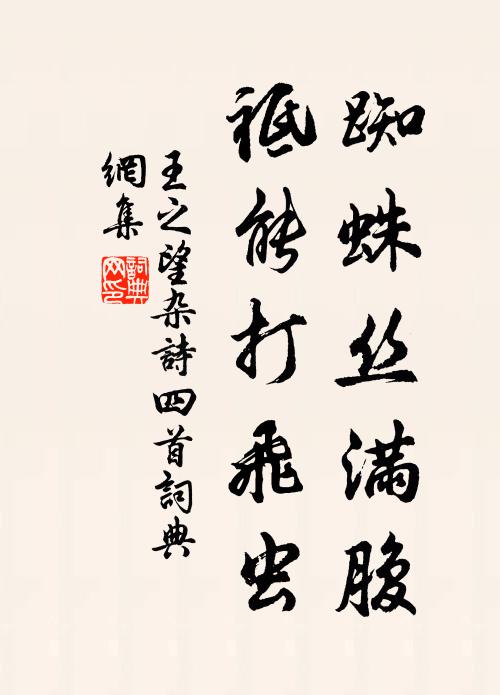 踟蛛丝满腹
祗能打飛虫
王之望杂詩四首詞典
網集
詞典
网印